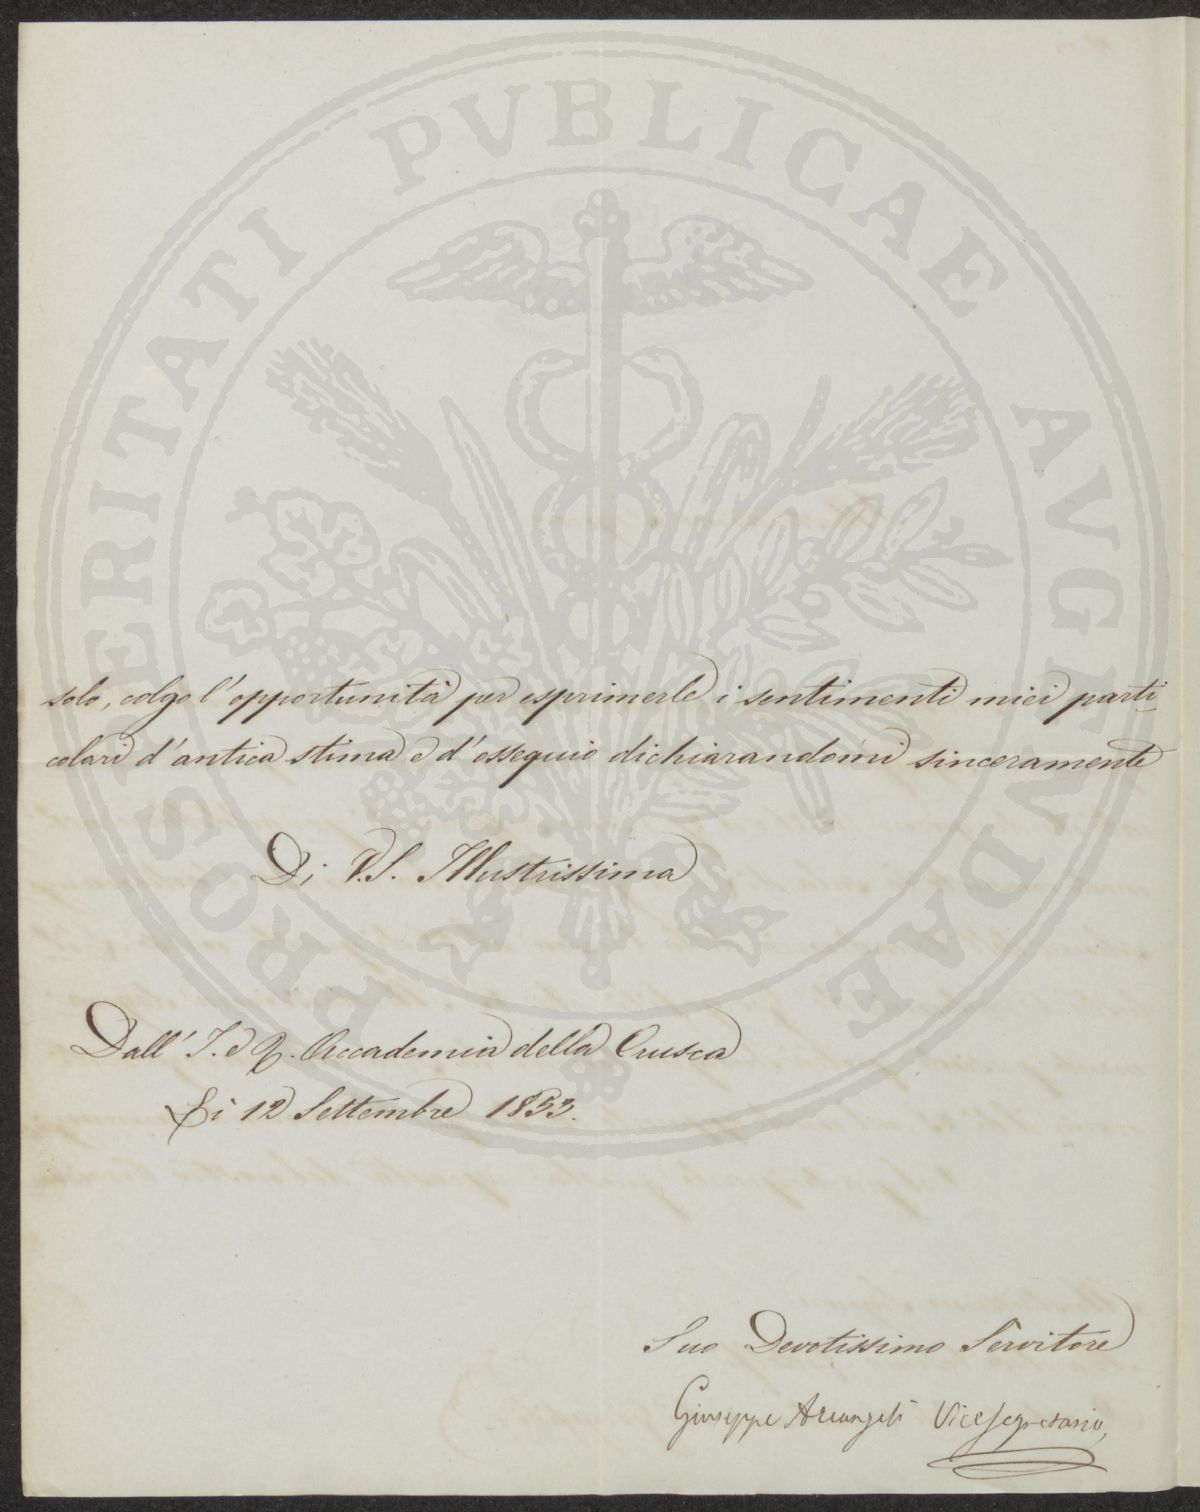 PROSPERITATI PVBLICAE AVGENDAE
solo, colgo l'opportunità per esprimerle i sentimenti miei parti-
colari d'antica stima e d'ossequio dichiarandomi sinceramente
Di V.S. Illustrissima
Dall' I. e R. Accademia della Crusca
Li 12 Settembre 1853.
Suo Devotissimo Servitore
Giuseppe Arcangeli Vicesegretario,